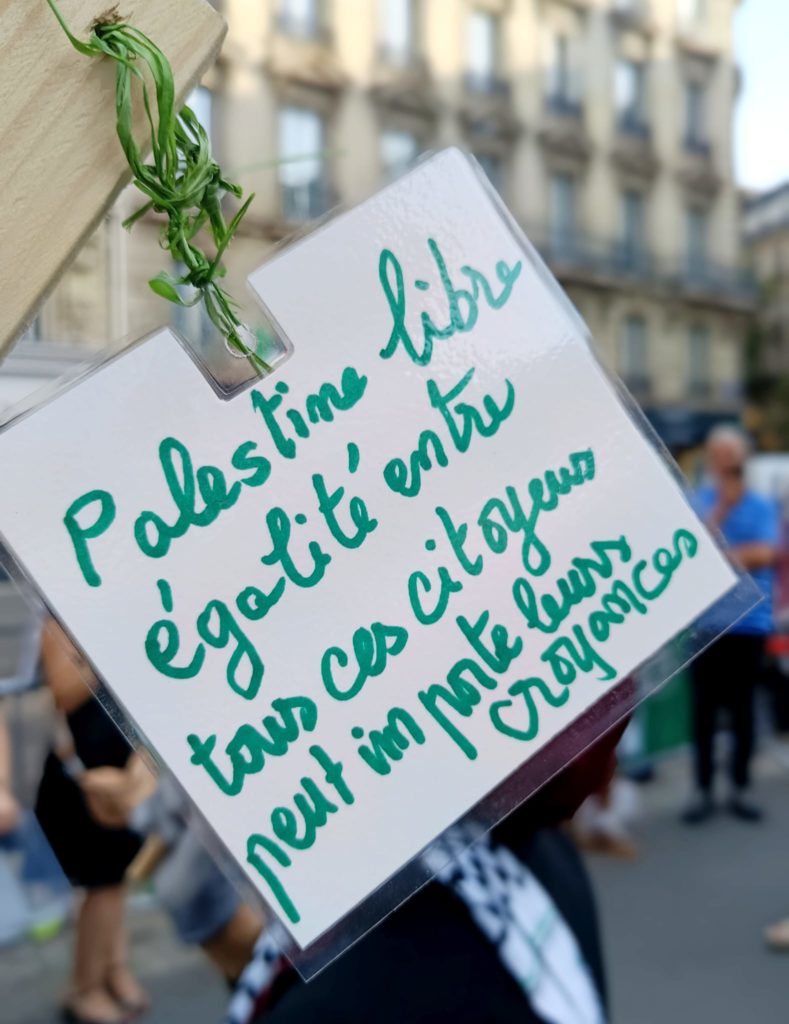 Palestine libre
égalité entre
tous ces citoyens
peut importe leurs
croyances